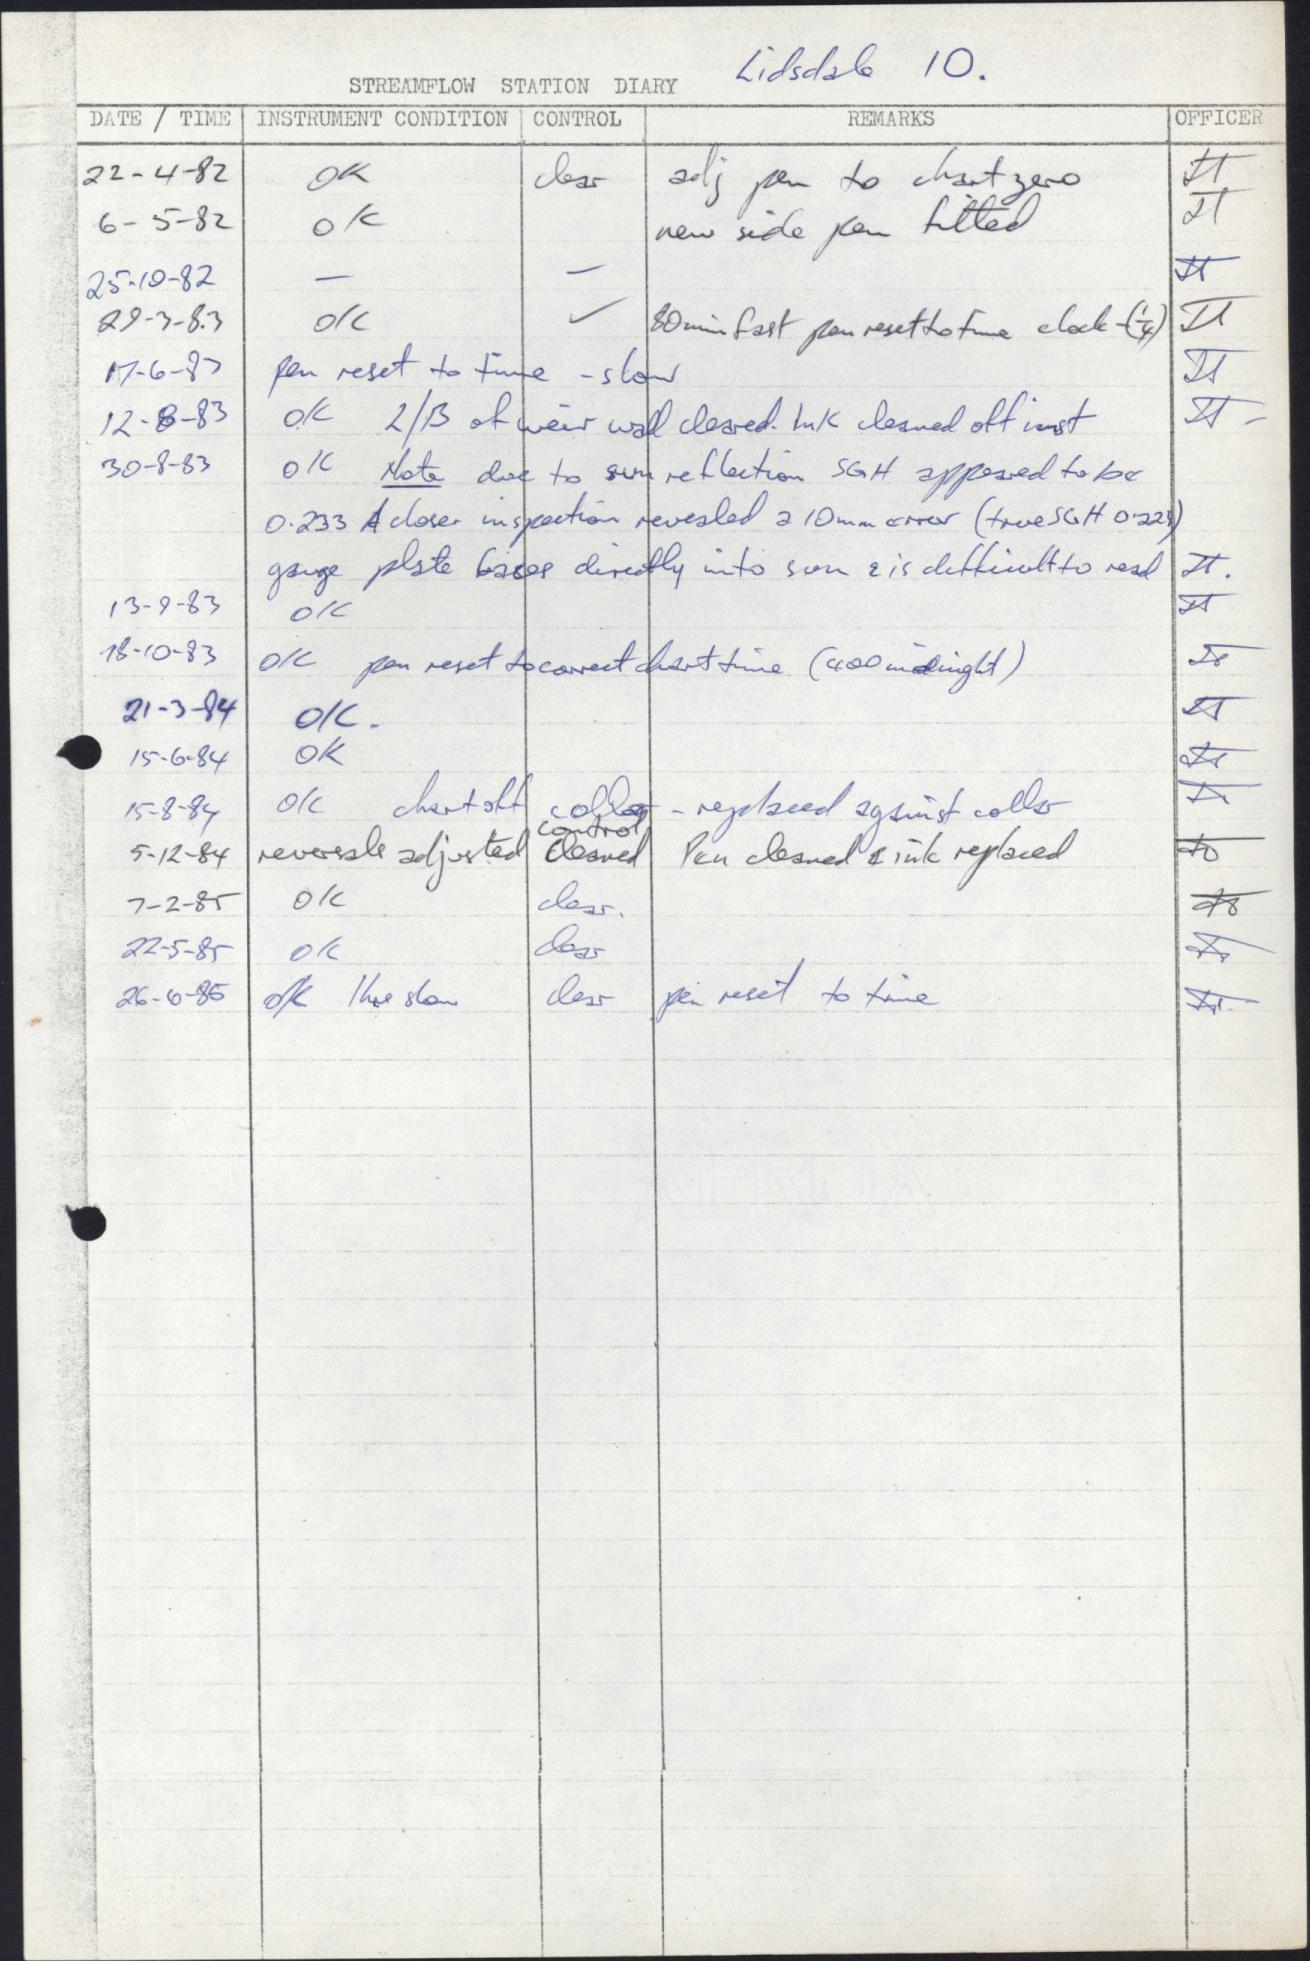 Lidsdale 10.
STREAMFLOW STATION DIARY
DATE / TIME INSTRUMENT CONDITION CONTROL REMARKS OFFICER
22-4-82 OK clear adj pen to chart zero
6-5-82 OK new side pen fitted
25-10-82 — —
29-3-83 OK ✓ 80min fast pen reset to time clock -(1/4)
17-6-83 pen reset to time - slow
12-8-83 OK L/B of weir wall cleared. Ink cleaned off inst
30-8-83 OK Note due to sun reflection SGH appeared to be
0.233 A closer inspection revealed a 10mm error (true SGH 0.223)
gauge plate faces directly into sun & is difficult to read
13-9-83 OK
18-10-83 OK pen reset to correct chart time (midnight)
21-3-84 OK.
15-6-84 OK
15-8-84 OK chart off collar - replaced against collar
control
5-12-84 reversale adjusted cleaned Pen cleaned & ink replaced
7-2-85 OK clear.
22-5-85 OK clear
85 OK 1hr slow clear pen reset to time